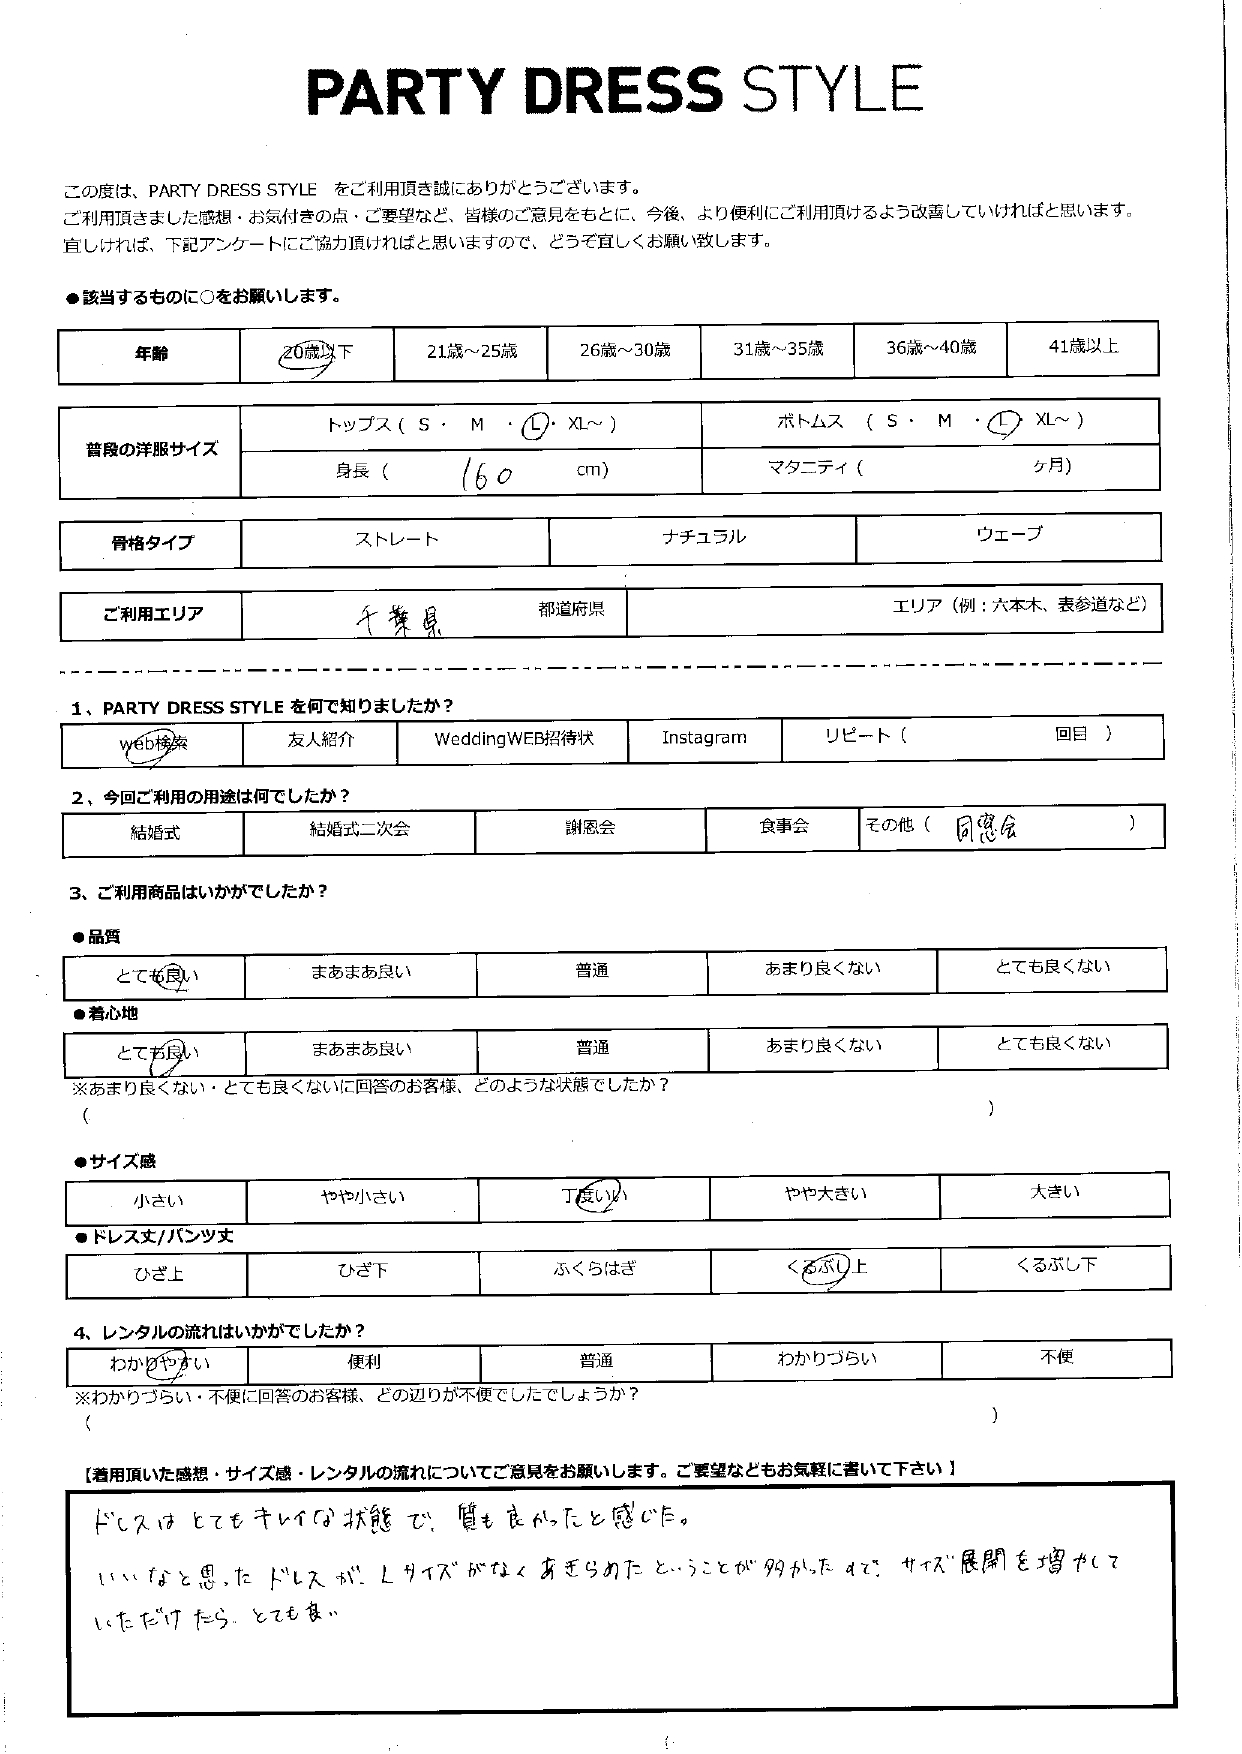 PARTY DRESS STYLE
この度は、PARTY DRESS STYLE をご利用頂き誠にありがとうございます。
ご利用頂きました感想・お気付きの点・ご要望など、皆様のご意見をもとに、今後、より便利にご利用頂けるよう改善していければと思います。
宜しければ、下記アンケートにご協力頂ければと思いますので、どうぞ宜しくお願い致します。
●該当するものに○をお願いします。
年齢 20歳以下 21歳～25歳 26歳～30歳 31歳～35歳 36歳～40歳 41歳以上
普段の洋服サイズ トップス ( S ・ M ・ L ・ XL～ ) ボトムス ( S ・ M ・ L ・ XL～ )
身長 ( 160 cm) マタニティ ( ケ月)
骨格タイプ ストレート ナチュラル ウェーブ
ご利用エリア 千葉県 都道府県 エリア (例：六本木、表参道など)
1、PARTY DRESS STYLE を何で知りましたか？
web検索 友人紹介 WeddingWEB招待状 Instagram リピート ( 回目 )
2、今回ご利用の用途は何でしたか？
結婚式 結婚式二次会 謝恩会 食事会 その他 ( 同窓会 )
3、ご利用商品はいかがでしたか？
●品質
とても良い まあまあ良い 普通 あまり良くない とても良くない
●着心地
とても良い まあまあ良い 普通 あまり良くない とても良くない
※あまり良くない・とても良くないに回答のお客様、どのような状態でしたか？
( )
●サイズ感
小さい やや小さい 丁度いい やや大きい 大きい
●ドレス丈/パンツ丈
ひざ上 ひざ下 ふくらはぎ くるぶし上 くるぶし下
4、レンタルの流れはいかがでしたか？
わかりやすい 便利 普通 わかりづらい 不便
※わかりづらい・不便に回答のお客様、どの辺りが不便でしたでしょうか？
( )
【着用頂いた感想・サイズ感・レンタルの流れについてご意見をお願いします。ご要望などもお気軽に書いて下さい 】
ドレスは とても キレイな 状態 で、質も 良かったと感じた。
いいなと思った ドレス が、Lサイズがなく あきらめた ということが多かった ので、サイズ展開を増やして
いただけたら、とても良い